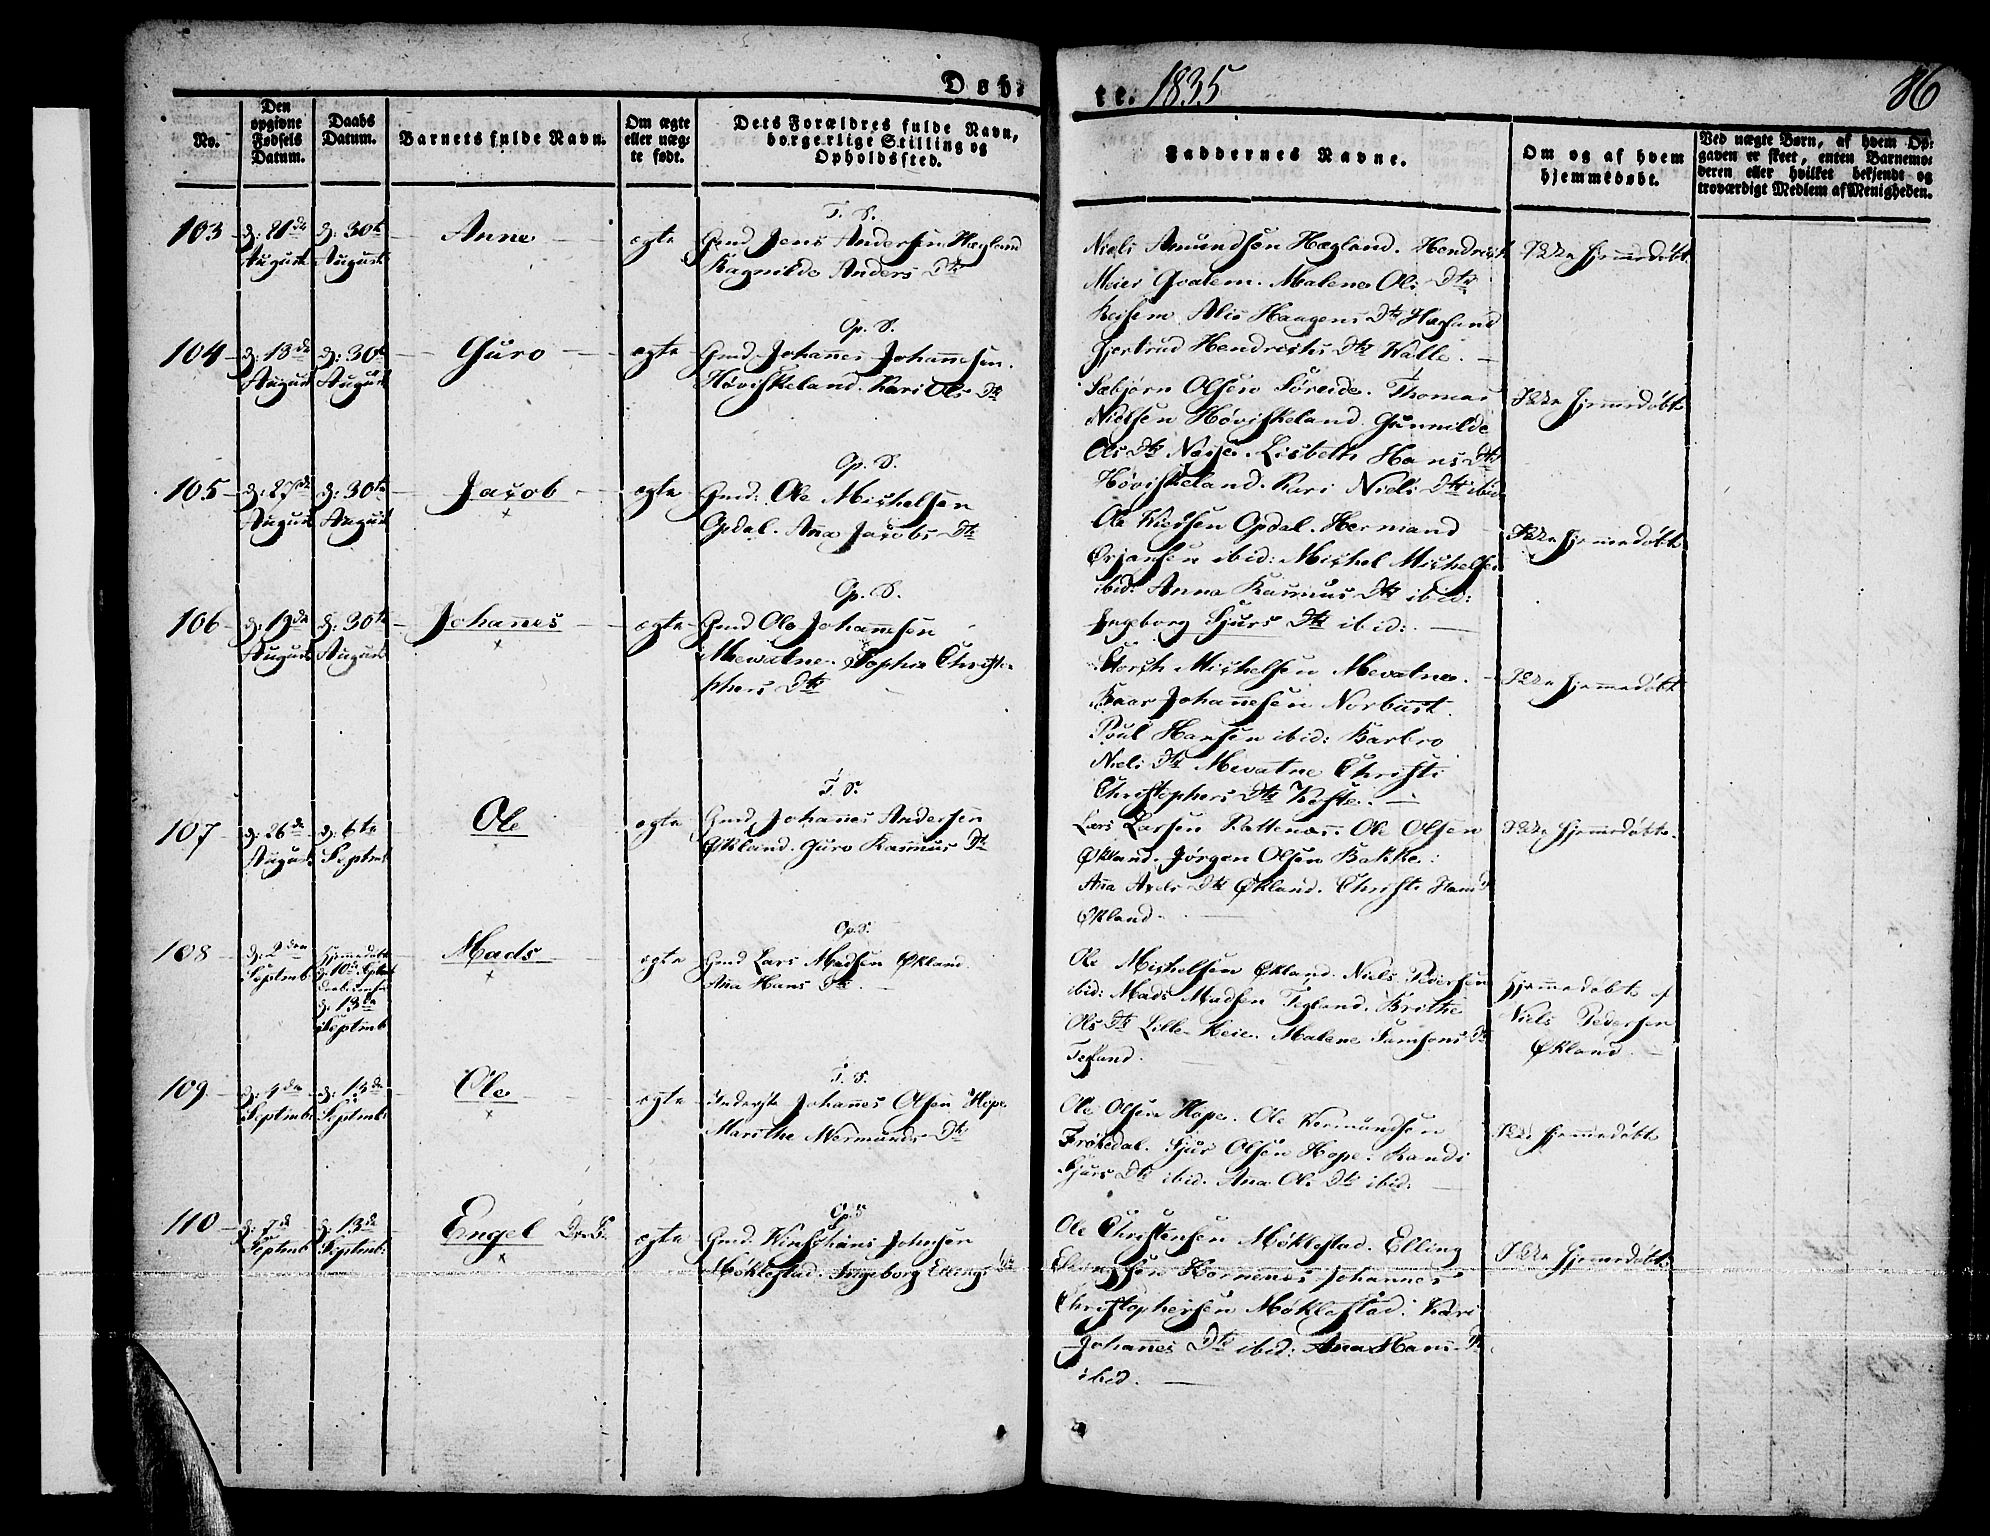 Døb-
te. 1835
86
No.
Den opgivne Fødsels Datum.
Daabs Datum.
Barnets fulde Navn.
Om ægte eller uægte født.
Dets Forældres fulde Navn, borgerlige Stilling og Opholdssted.
Faddernes Navne.
Om og af hvem hjemmedøbt.
Ved uægte Børn, af hvem Opgaven er skeet, enten Barnemoderen eller hvilket bekjendt og troværdigt Medlem af Menigheden.
103
d: 21de August
d: 30te August
Anne
ægte
T. S.
Gmd Jens Andersen Hægland
Ragnilde Anders Dtr
Niels Amundsen Hægland. Hendrich
Meier Qvalem. Malene Ols Dtr
Haagens Dtr Hægland
Gjertrud Hendrichs Dtr Walle.
Ikke hjemmedøbt
104
d: 13de August
d: 30te August
Guro
ægte
Op. S.
Gmd Johannes Johannesen
Høviskeland. Kari Ols Dtr
Sæbjørn Olsen Søreide. Thomas
Nielsen Høviskeland. Gunnilde
Ols Dtr Lisbeth Hans Dtr
Høviskeland. Kari Niels Dtr ibid
Ikke hjemmedøbt
105
d: 27de August
d: 30te August
Jacob
x
ægte
Op. S.
Gmd: Ole Michelsen
Opdal. Anna Jacobs Dtr
Ole Opdal. Hermand
Ørjansen ibid: Michel Michelsen
ibid: Anna Rasmus Dtr ibid:
Ingborg Sjurs Dtr ibid:
Ikke hjemmedøbt
106
d: 19de August
d: 30te August
Johanes
x
ægte
Op. S.
Gmd Ole Johannesen
Mevatne. Sophia Christo-
phers Dtr
Michelsen Mevatne.
Baar Johannesen Norbust.
Poul Hansen ibid: Barbro
Niels Dtr Mevatne Christi
Christophers Dtr
Ikke hjemmedøbt
107
d: 26de August
d: 6te Septmb:
Ole
x
ægte
T. S.
Gmd Johanes Andersen
Økland. Guro Rasmus Dtr
Lars Larsen Rattenæs. Ole Olsen
Økland. Jørgen Olsen Bakke:
Ana Axels Dtr Økland. Christi
Økland.
Ikke hjemmedøbt.
108
d: 2den Septmb:
Hjemmedøbt d: 10de
d: 13de Septmb:
Mads
x
ægte
Op. S.
Gmd Lars Madsen Økland
Ana Hans Dtr.
Ole Michelsen Økland. Niels Pedersen
ibid: Mads Madsen Tegland. Brithe
Ols Dtr Lille-Heie. Malene Samsons Dtr
Hjemmedøbt af
Niels Pedersen
Økland.
109
d: 4de Septmb:
d: 13de Septmb:
Ole
x
ægte
T. S.
Johannes Olsen Hope
Marithe Wermunds Dtr
Ole Olsen Hope. Ole Vermundsen
Frøkedal. Sjur Olsen Hope: Randi
Sjurs Dtr ibid. Ana Ols Dtr ibid:
Ikke hjemmedøbt
110
d: 7de Septmb:
d: 13de Septmb:
Engel
x
ægte
Op. S.
Gmd. Johnsen
Møklestad. Ingeborg Ellings Dtr
Ole Christensen Møklestad. Elling
Ellingsen Hornenes Johannes
Christophersen Møklestad. Kari
Johannes Dtr ibid: Ana Hans Dtr
ibid.
Ikke hjemmedøbt